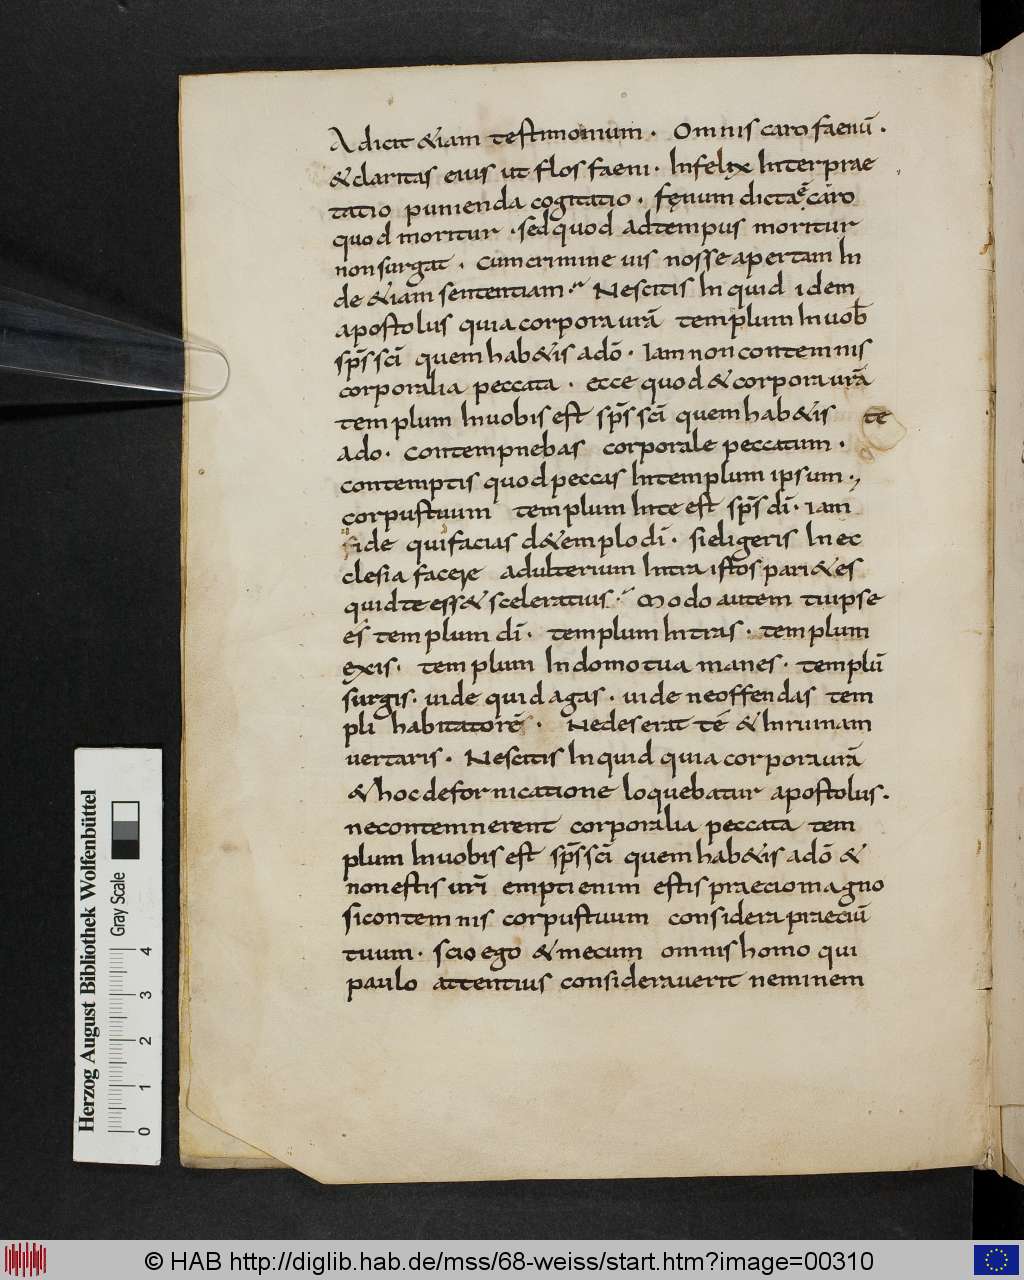 Adicit &iam testimonium · Omnis caro faenū ·
& claritas eius ut flos faeni · Infelix Interprae
tatio punienda cogitatio · fęnum dicta ē caro
quod moritur · sed quod ad tempus moritur
non surgat · Cum crimine uis nosse apertam In
de &iam sententiam · Nescitis Inquid idem
apostolus quia corpora urā templum In uob
sp̄s sc̄i quem hab&is a dō · Iam non contemnis
corporalia peccata · ecce quod & corpora urā
templum In uobis est sp̄s sc̄i quem hab&is te
a do · Contempnebas corporale peccatum ·
contemptis quod peccas In templum ipsum ·,
corpus tuum templum In te est sp̄s dī · iam
uide qui facias d& emplo dī · si eligeris In ec
clesia facere adulterium Intra istos pari&es
quid te ess& sceleratius · Modo autem tu ipse
es templum dī · templum Intras · templum
exis · templum In domo tua manes · templū
surgis · uide quid agas · uide ne offendas tem
pli habitatorē · Ne deserat te & In ruinam
uertaris · Nescitis Inquid quia corpora urā
& hoc de fornicatione loquebatur apostolus ·
ne contemnerent corporalia peccata tem
plum In uobis est sp̄s sc̄i quem hab&is a dō &
non estis urī empti enim estis praecio magno
si contemnis corpus tuum considera praeciū
tuum · scio ego & mecum omnis homo qui
paulo attentius considerauerit neminem
Herzog August Bibliothek Wolfenbüttel
Gray Scale
0 1 2 3 4
© HAB http://diglib.hab.de/mss/68-weiss/start.htm?image=00310